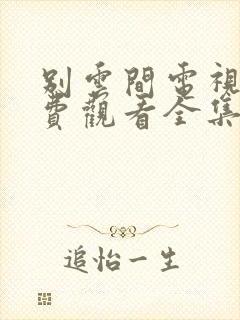 別雲間電視
費觀看全集
追怡一生